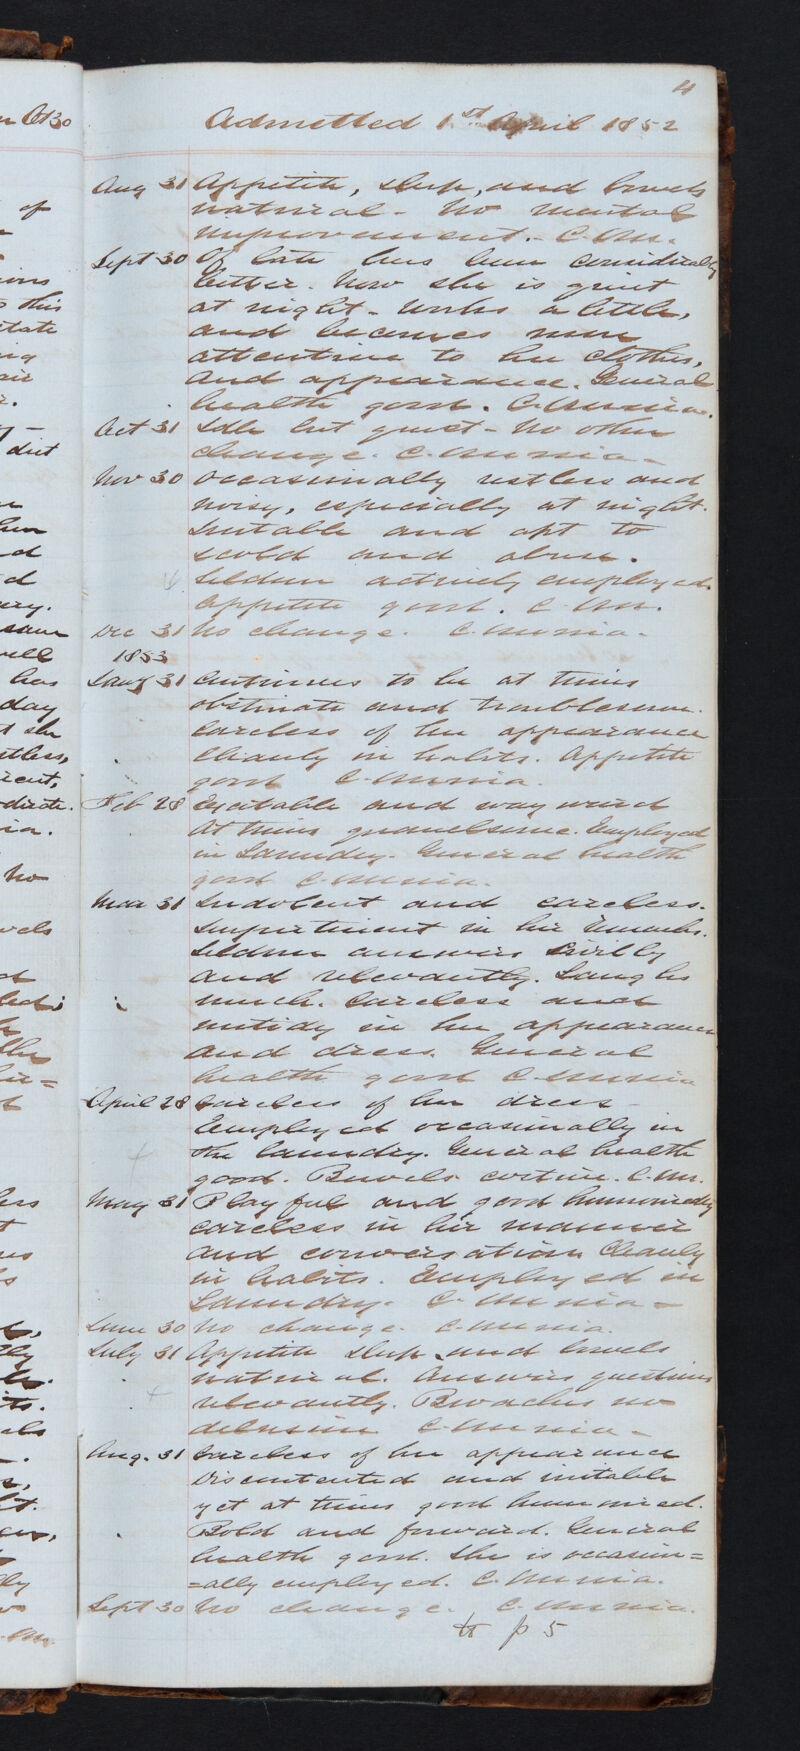 4
Admitted 1st April 1852
Aug 31 Appetite, sleep, and bowels
natural - No mental
improvement. - C.M.
Sept 30 Of late has been considerably
better. Now she is quiet
at night - works a little,
and becomes more
attentive to her clothes,
and appearance. General
health good. C. Minnia.
Oct 31 Idle but quiet - No other
change. C. Minnia -
Nov 30 Occasionally restless and
noisy, especially at night.
Irritable and apt to
scold and abuse.
Seldom actively employed.
Appetite good. C.M.
Dec 31 No change. C. Minnia -
1853
Jany 31 Continues to be at times
obstinate and troublesome.
Careless of her appearance
Cleanly in habits. Appetite
good C. Minnia.
Feb 28 Excitable and wayward
At times quarrelsome. Employed
in Laundry. General health
good C. Minnia.
Mar 31 Indolent and careless.
Impertinent in her remarks.
Seldom answers civilly
and relevantly. Laughs
much. Careless and
untidy in her appearance
and dress. General
health good C. Minnia
April 28 Careless of her dress -
Employed occasionally in
the laundry. General health
good. Bowels costive. C.M.
May 31 Playful and good humouredly
careless in her manner
and conversation Cleanly
in habits. Employed in
Laundry. C. Minnia -
June 30 No change. C. Minnia.
July 31 Appetite sleep and bowels
natural. Answers questions
relevantly. Broaches no
delusion C. Minnia -
Aug. 31 Careless of her appearance
Discontented and irritable
yet at times good humoured.
Bold and forward. General
health good. She is occasion=
=ally employed. C. Minnia.
Sept 30 No change. C. Minnia.
to p 5